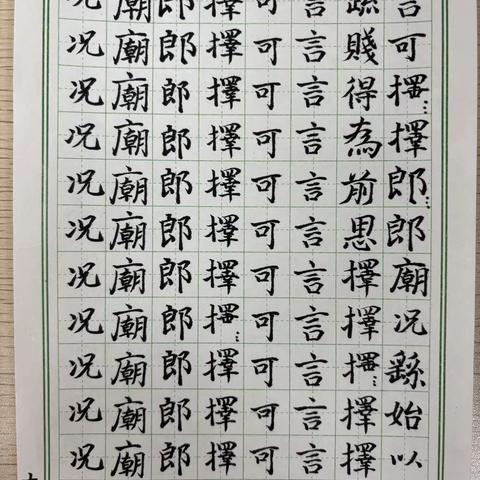 言可擇郎郎廟况繇始以
疏賤得為前思擇擇擇擇
言言言言言言言言言言言
可可可可可可可可可可可
擇擇擇擇擇擇擇擇擇擇
郎郎郎郎郎郎郎郎郎郎郎
廟廟廟廟廟廟廟廟廟廟廟
况况况况况况况况况况况